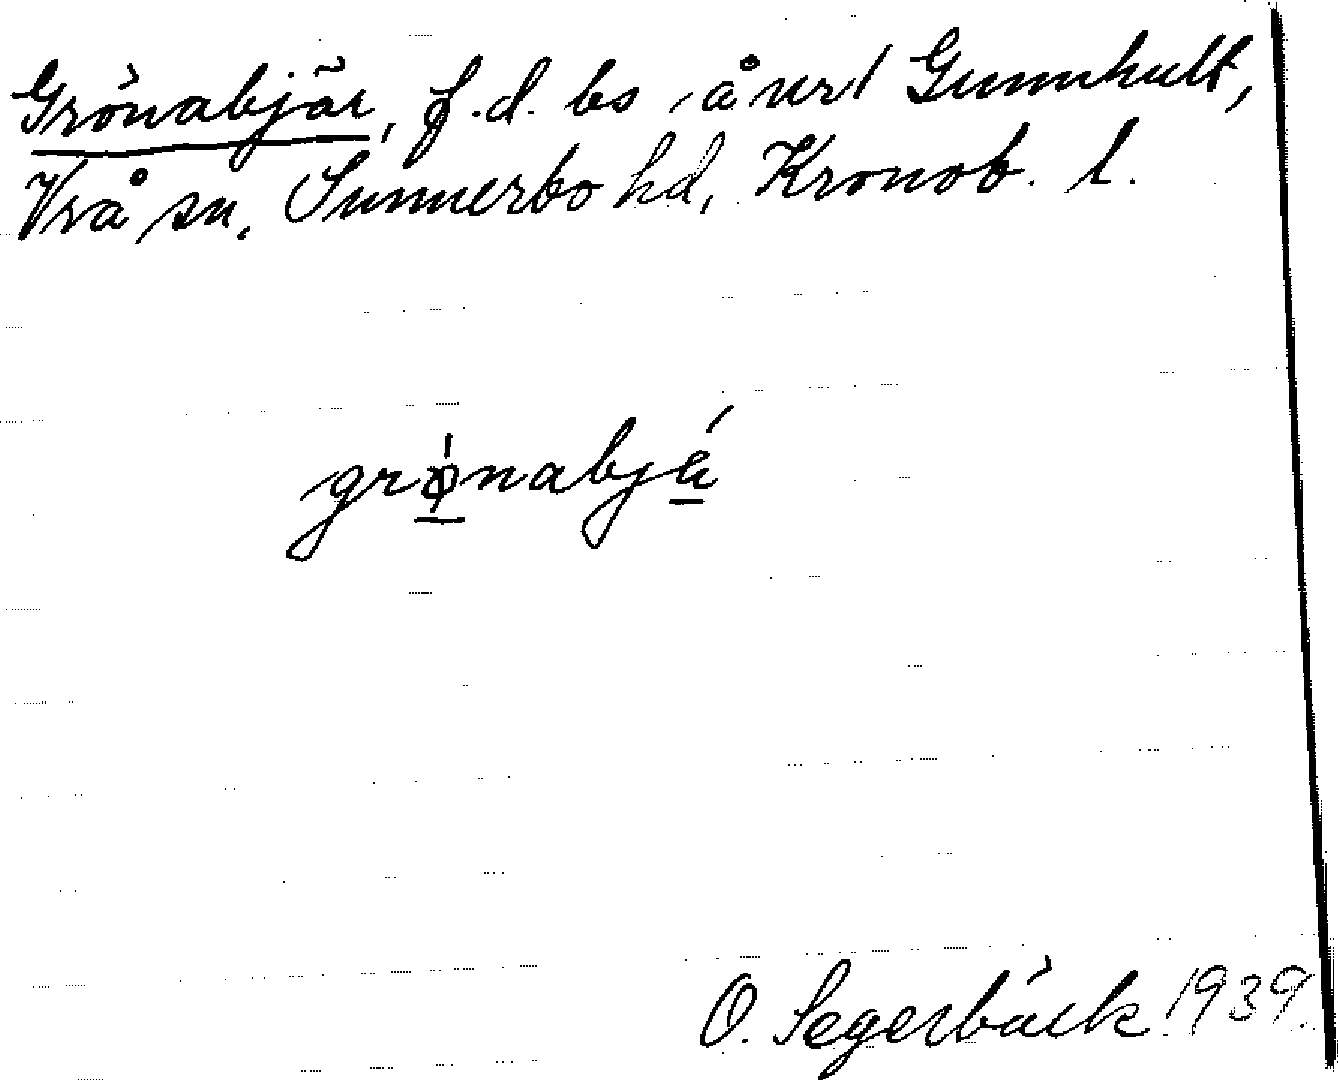 Grönabjär, f.d. bs å urt Gunnhult,
Vrå sn, Sunnerbo hd, Kronob. l.
grǿ̲nabjá̲
O. Segerbäck 1939.